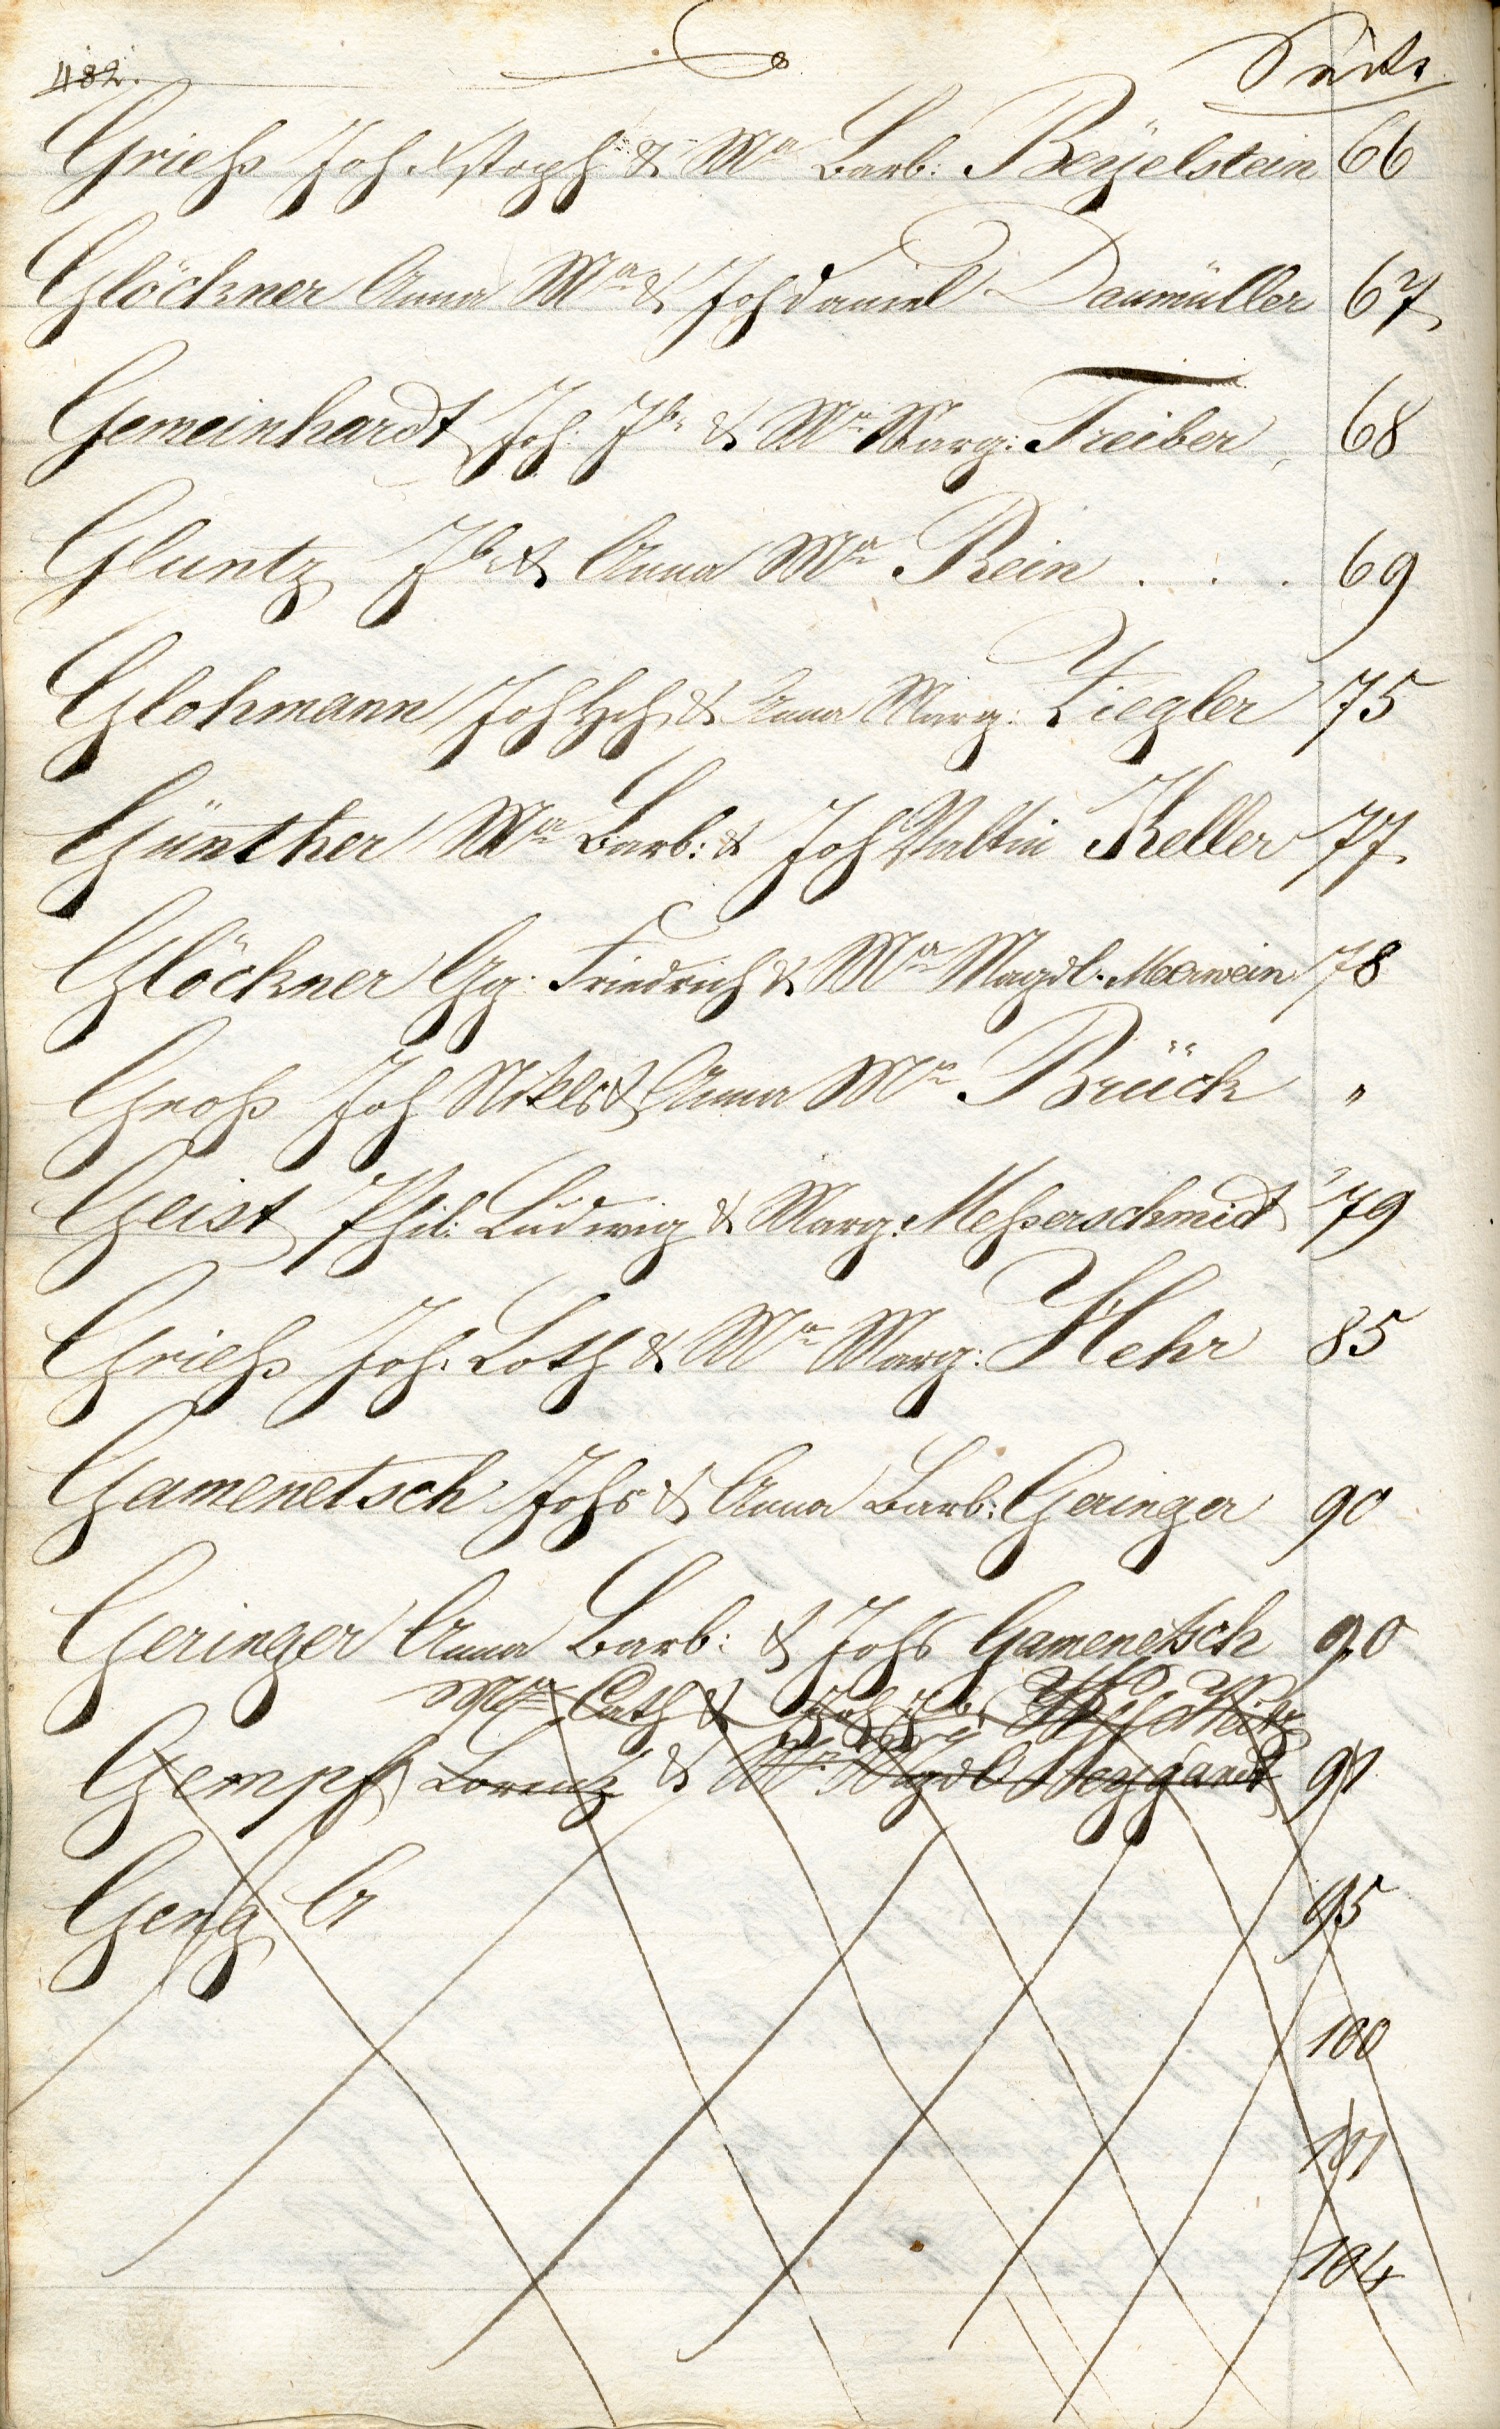 482.
G
Seite
Grieſs Joh. Xstoph & Mª Barb: Beyelstein 66
Glöckner Anna Mª & Joh daniel Daumüller 67
Gemeinhardt Joh. Jb & Mª Marg: Treiber 68
Gluntz Jb & Anna Mª Rein . . . 69
Glohmann Joh Hch & Anna Marg: Ziegler 75
Günther Mª Barb: & Joh Valtin Keller 77
Glöckner Gg: Friedrich & Mª Magdl. Meerwein 78
Groſs Joh Nikls & Anna Mª Brück "
Geist Phil: Ludwig & Marg: Meſserschmidt 79
Grieſs Joh. Loth & Mª Marg: Hehr 85
Gamenetsch Johs & Anna Barb: Geringer 90
Geringer Anna Barb: & Johs Gamenetsch 90
Mª Cath & Joh Jb
Gempf Lorenz & Mª Magdl Weygandt 91
Geng G 95
100
101
104